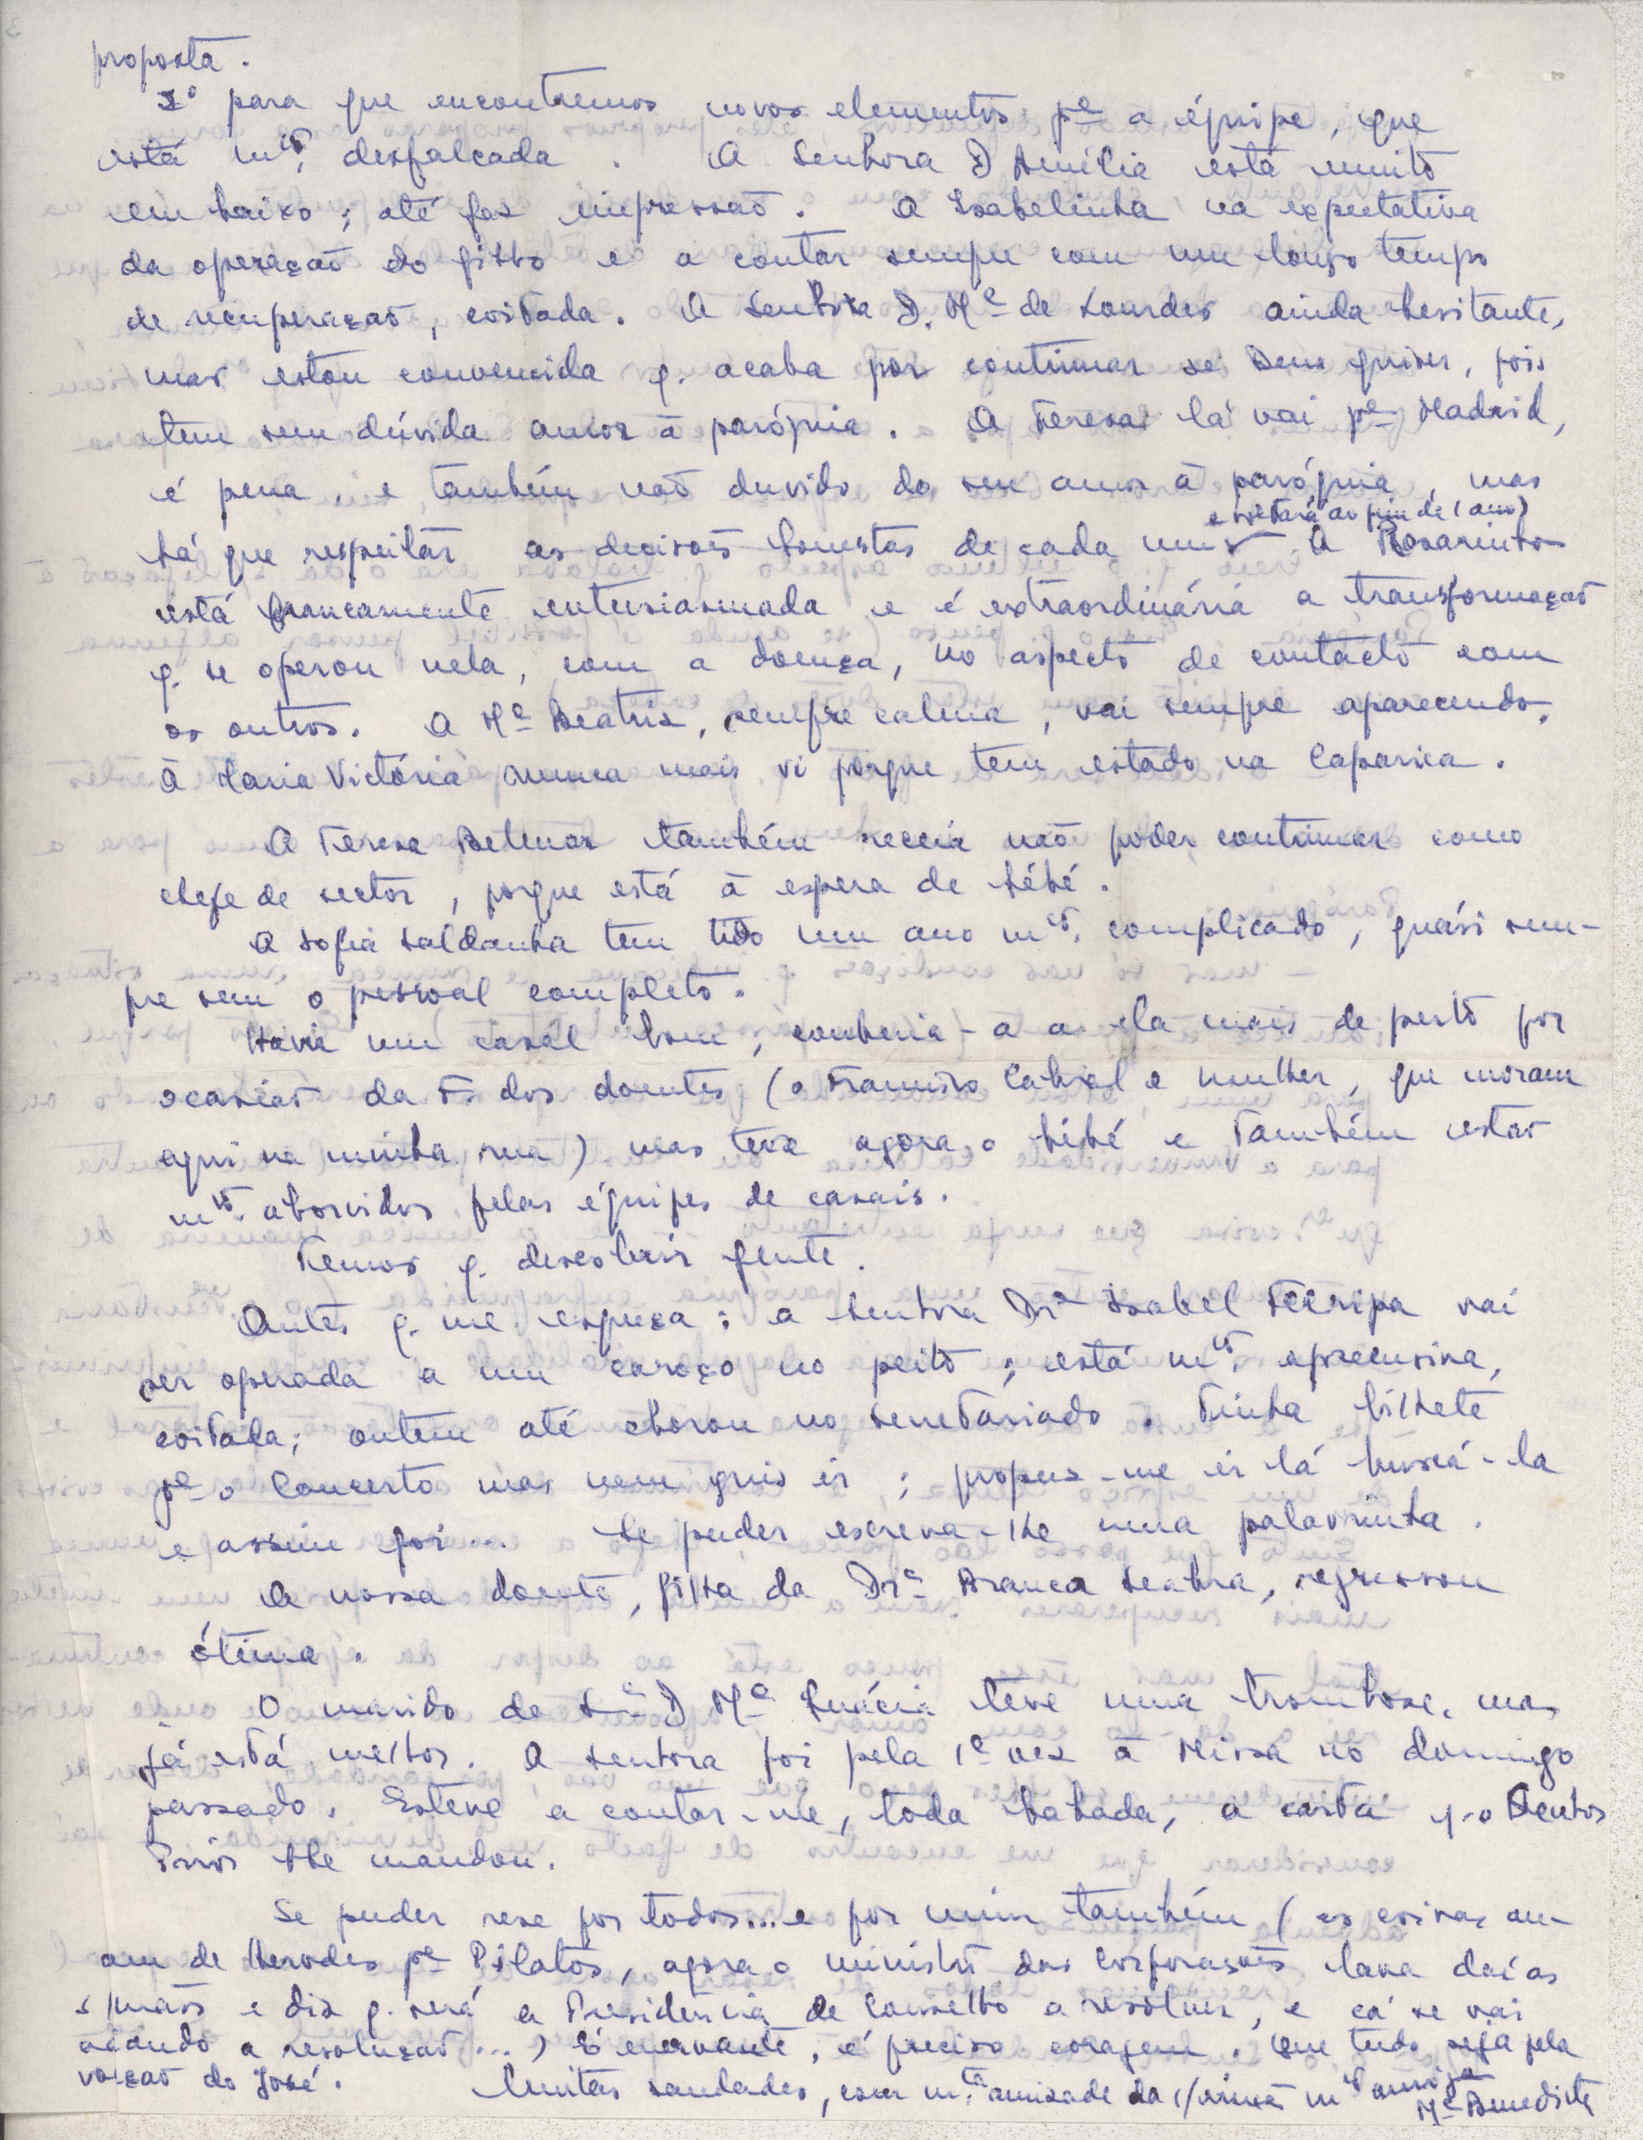 proposta.
2º para que encontremos novos elementos pª a équipe, que
está mtº. desfalcada. A Senhora D Amília está muito
em baixo; até faz impressão. A Isabelinha na expectativa
da operação do filho e a contar sempre com um longo tempo
de recuperação, coitada. A Senhora D. Mª de Lourdes ainda hesitante,
mas estou convencida q. acaba por continuar se Deus quiser, pois
tem sem dúvida amor à paróquia. A Teresa lá vai pª Madrid,
é pena, e também não duvido do seu amor à paróquia, mas
e voltará ao fim de 1 ano)
há que respeitar as decisões honestas de cada um. A Rosarinho
está francamente entusiasmada e é extraordinária a transformação
q. se operou nela, com a doença, no aspecto de contacto com
os outros. A Mª Beatriz, sempre calma, vai sempre aparecendo.
A Maria Victória nunca mais vi porque tem estado na Caparica.
A Teresa Belmar também receia não poder continuar como
chefe de sector, porque está à espera de bébé.
A Sofia Saldanha tem tido um ano mtº. complicado, quási sem-
pre sem o pessoal completo.
Havia um casal bom; conhecia-a a ela mais de perto por
ocasião da F. dos doentes (o Francisco Cabral e mulher, que moram
aqui na minha rua) mas teve agora o bébé e também estão
mtº. absorvidos pelas équipes de casais.
Temos q. descobrir gente.
Antes q. me esqueça: a senhora Drª Isabel vai
ser operada a um caroço no peito; está mtº. apreensiva,
coitada; ontem até chorou no Secretariado. Tinha bilhete
pª o Concerto mas nem quis ir; propus-me ir lá buscá-la
e assim foi... Se puder escreva-lhe uma palavrinha.
A nossa doente, filha da Drª Branca Seabra, regressou
ótima.
O marido da Sª D Mª Lucécia teve uma trombose, mas
já está melhor. A senhora foi pela 1ª vez à Missa no domingo
passado. Esteve a contar-me, toda babada, a carta q. o Senhor
Prior lhe mandou.
Se puder reze por todos... e por mim também (as coisas an-
am de Herodes pª Pilatos, agora o ministro das Corporações lava daí as
s/mãos e diz q. será a Presidência de Conselho a resolver, e cá se vai
adiando a resolução...) É enervante, é preciso coragem. Que tudo seja pela
vocação do José. Muitas saudades, com mtª. amizade da s/irmã mtº amiga
Mª Benedicta